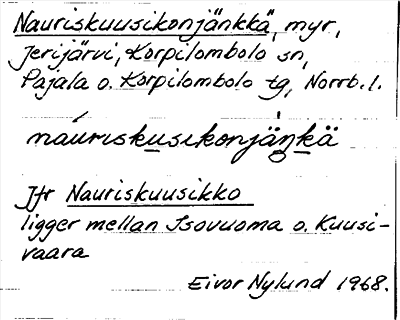 Nauriskuusikonjänkkä, myr,
Jerijärvi, Korpilombolo sn,
Pajala o. Korpilombolo tg, Norrb. l.
náuriskusikonjáŋkä
Jfr Nauriskuusikko
ligger mellan Isovuoma o. Kuusi-
vaara
Eivor Nylund 1968.